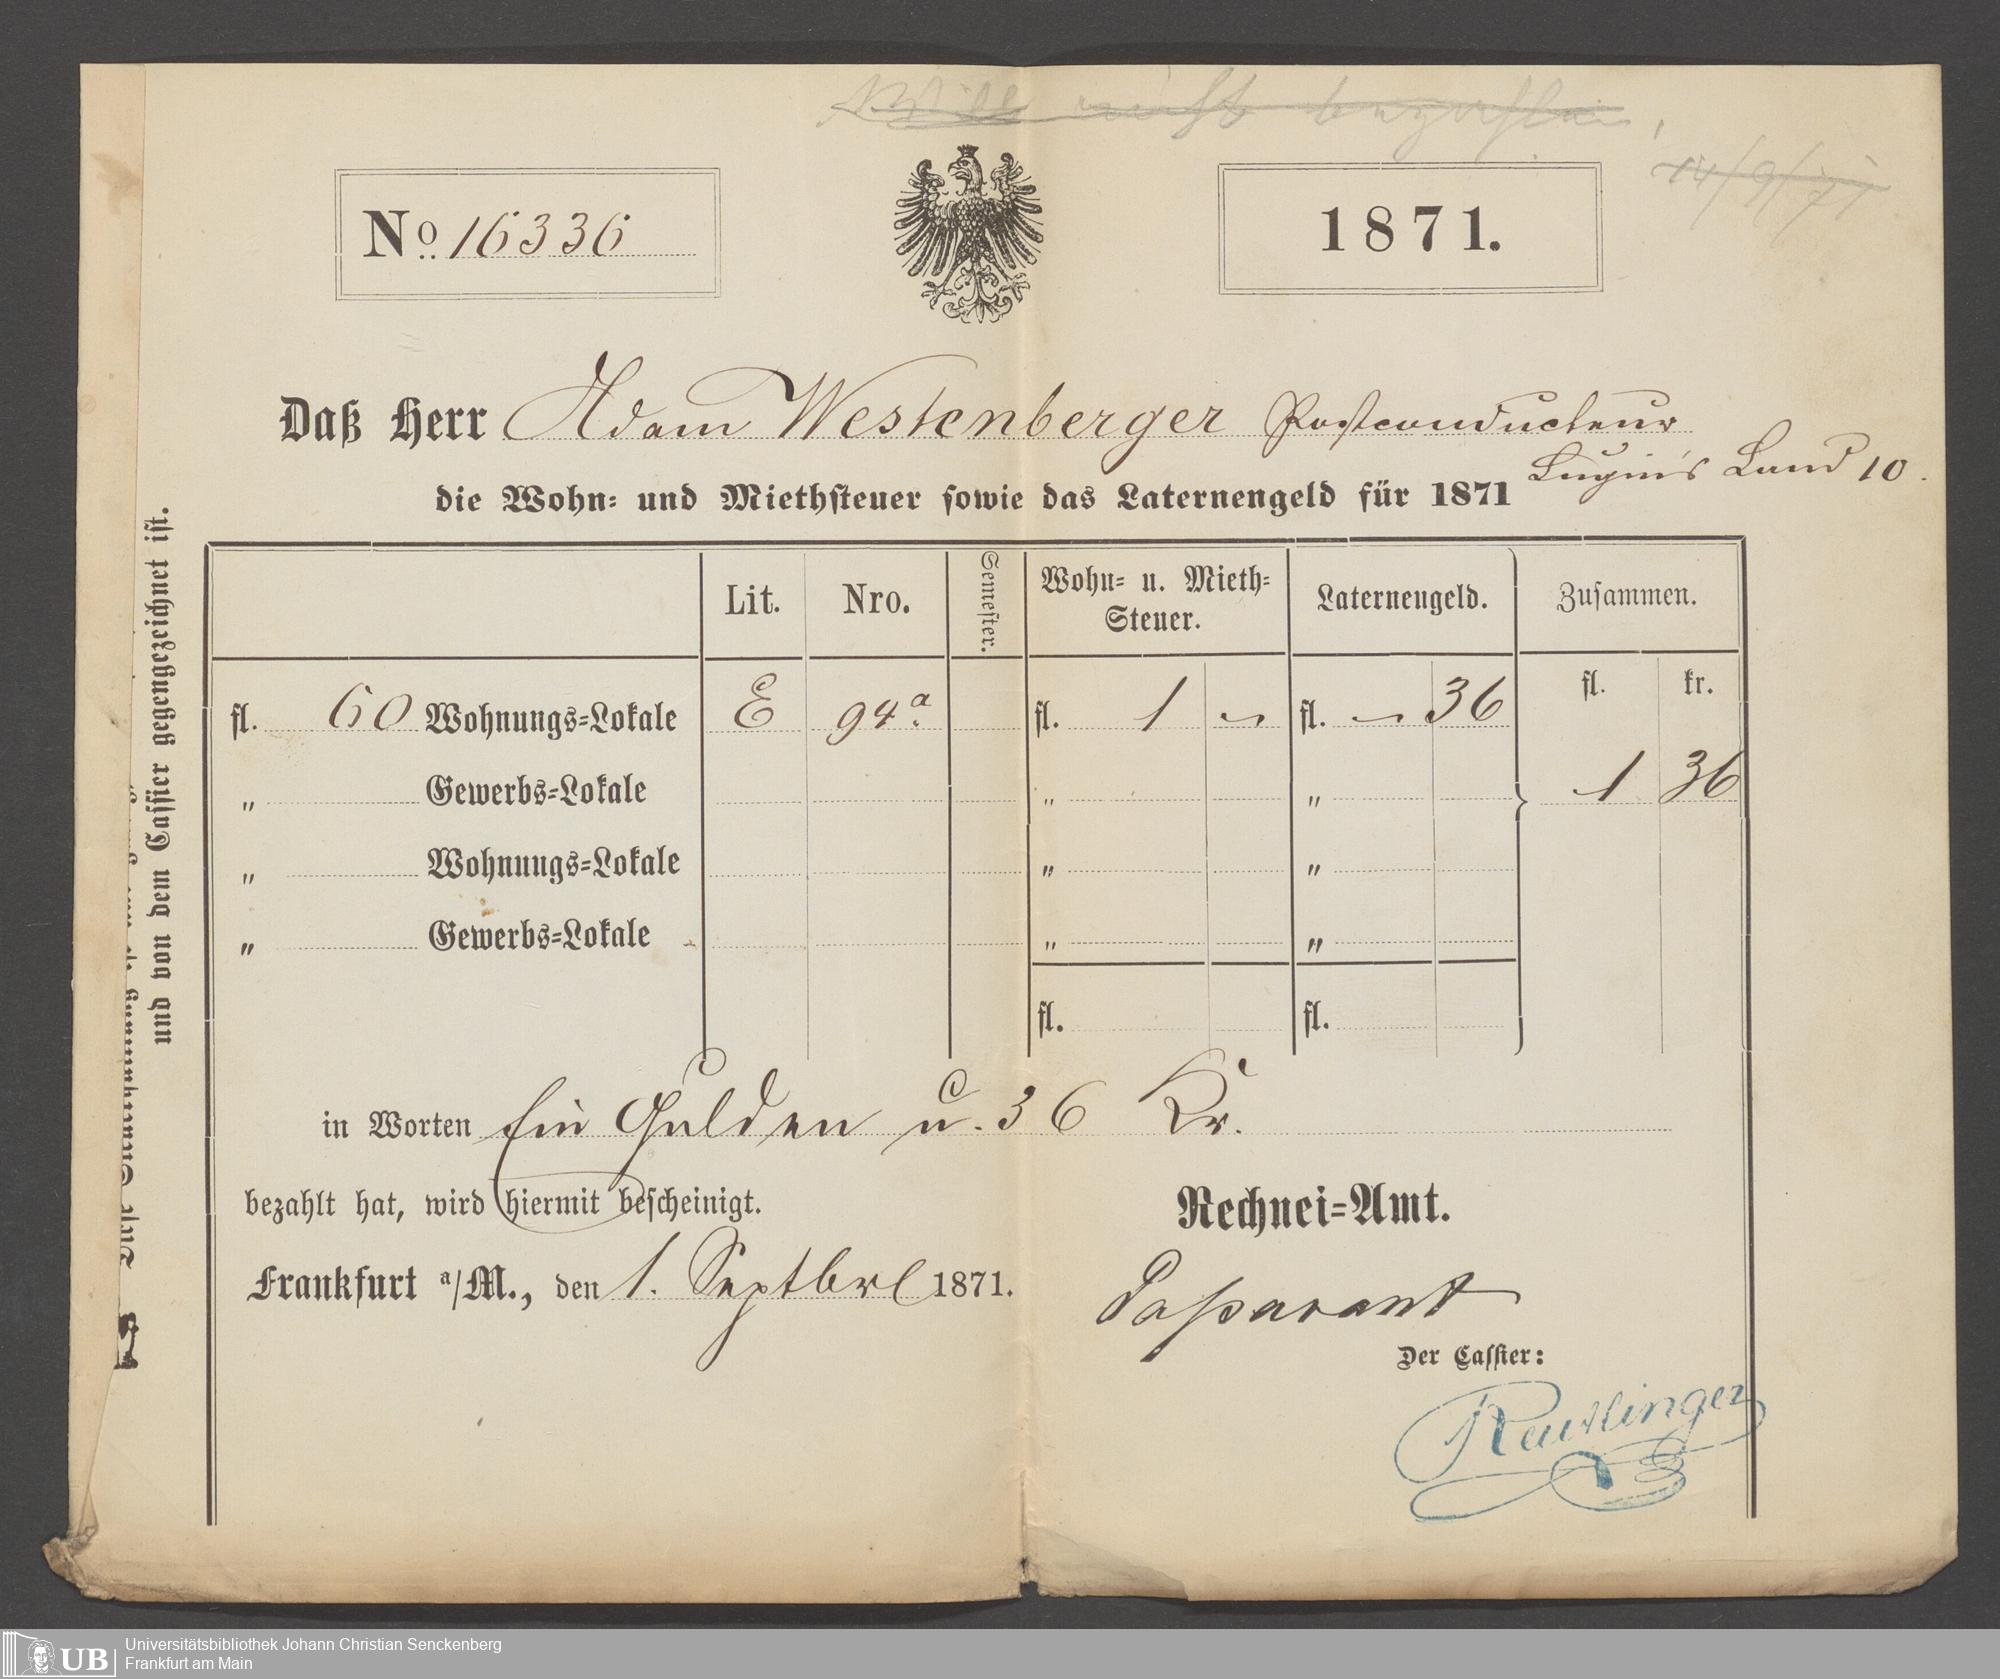 Will nicht bezahlen,
14/9/71
No. 16336
1871.
Daß Herr Adam Westenberger Postconducteur
Lugins Land 10.
die Wohn- und Miethsteuer sowie das Laternengeld für 1871
Lit. Nro. Semester. Wohn- u. Mieth-Steuer. Laternengeld. Zusammen.
fl. kr.
fl. 60 Wohnungs-Lokale E 94a. fl. 1 — fl. — 36
„ Gewerbs-Lokale „ „ 1 36
„ Wohnungs-Lokale „ „
„ Gewerbs-Lokale „ „
fl. fl.
in Worten Ein Gulden u. 36 Kr.
bezahlt hat, wird hiermit bescheinigt.
Rechnei-Amt.
Frankfurt a/M., den 1. Septbre 1871.
Passavant
Der Cassier:
Reutlinger
und von dem Cassier gegengezeichnet ist.
UB Universitätsbibliothek Johann Christian Senckenberg
Frankfurt am Main